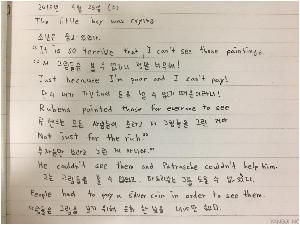 2015년 4월 25일 (토)
The little boy was crying
소년은 울고 있었다.
"It is so terrible that I can't see those paintings.
"저 그림들을 볼 수 없다니 정말 비참해!
Just because I'm poor and I can't pay!
단지 내가 가난해서 돈을 낼 수 없기 때문이라니!
Rubens painted those for everyone to see
루벤스는 모든 사람들이 보라고 저 그림들을 그린 거야
Not just for the rich."
부자들만 보라고 그린 게 아니야."
He couldn't see them and Patrasche couldn't help him.
그는 그림들을 볼 수 없었고 파트라슈는 그를 도울 수 없었다.
People had to pay a silver coin in order to see them.
사람들은 그림을 보기 위해 은화 한 닢을 내야만 했다.